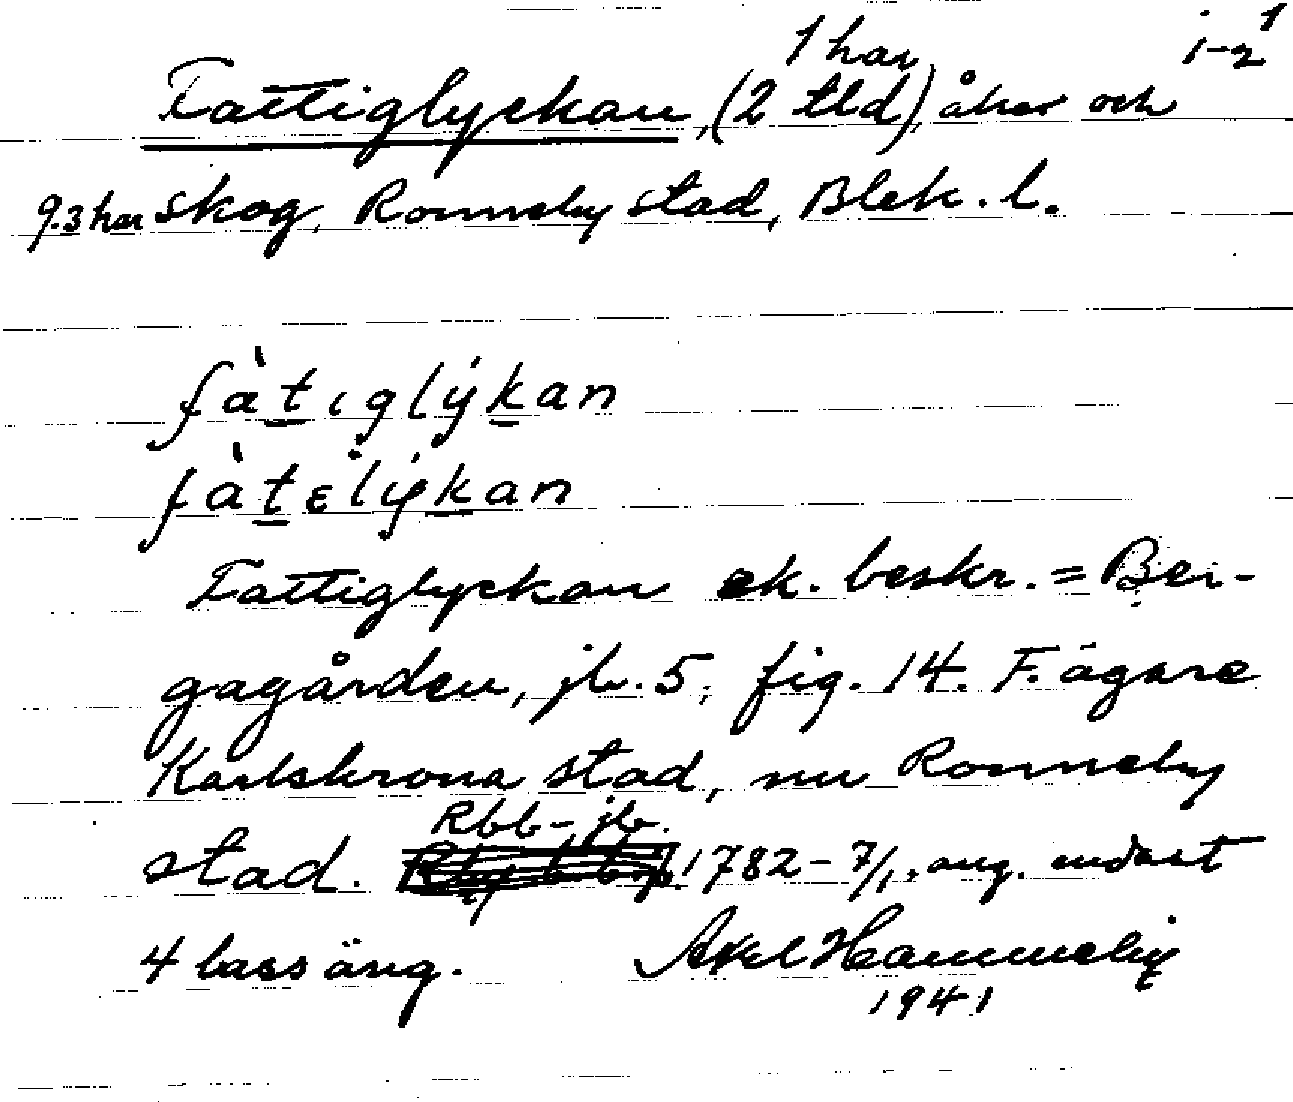 1 har i-2¹
Fattiglyckan, (2 tld), åker och
9.3 har skog, Ronneby stad, Blek. l.
fàtıglýkan
fàtɛlýkan
Fattiglyckan ek. beskr. = Ber-
gagården, jb. 5, fig. 14. F. ägare
Karlskrona stad, nu Ronneby
Rbb-jb.
stad. 1782-7/1. ang. endast
4 lass äng. Axel Hammelin
1941